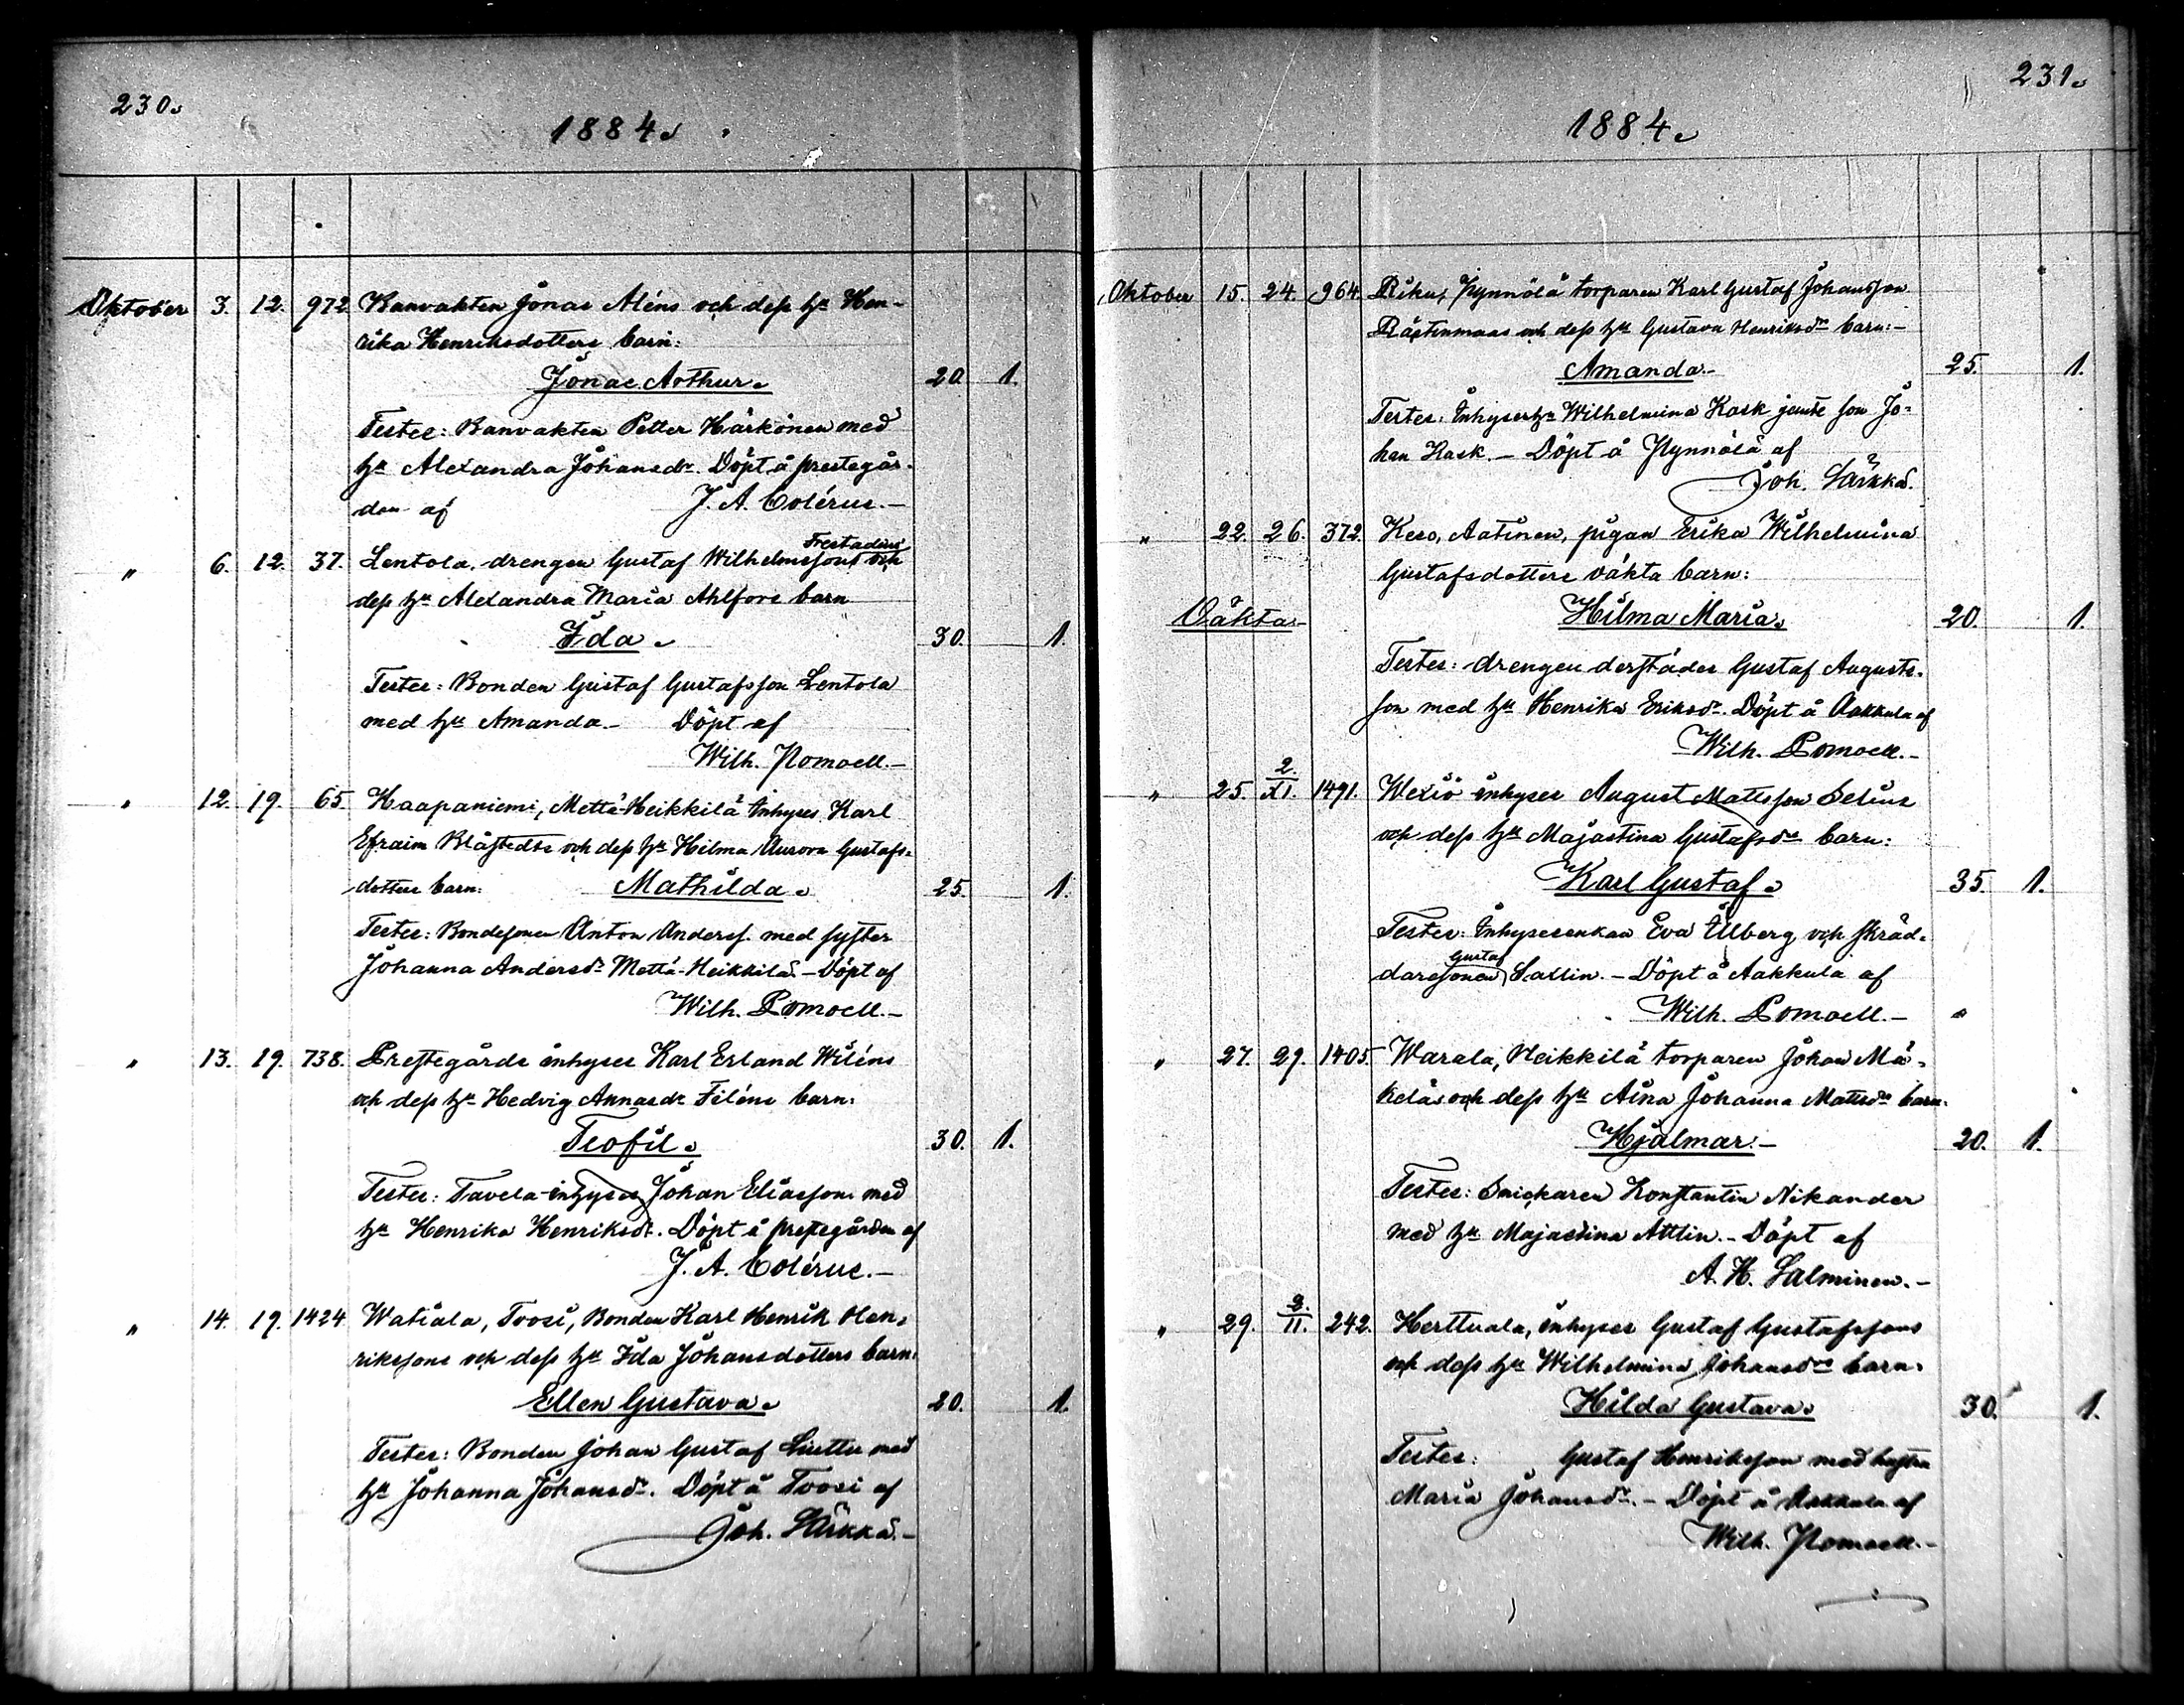 230.
1884.
Oktober 3. 12. 972 Banvakten Jonas Aléns och dess hu Hen-
rika Henriksdotters barn:
Jonas Arthur. 20. 1.
Testes: Banvakten Petter Härkönen med
hu Alexandra Johansdr. Döpt å prestegår-
den af J. A. Colérus.-
" 6. 12. 37. Lentola, drengen Gustaf Wilhelmssons Frestadius och
dess hu Alexandra Maria Ahlfors barn
Ida. 30. 1.
Testes: Bonden Gustaf Gustafsson Lentola
med hu Amanda- Döpt af
Wilh. Pomoell.-
" 12. 19. 65. Haapaniemi, Mettä-Heikkilä Inhyses Karl
Efraim Blåstedts och dess hu Hilma Aurora Gustafs-
dotters barn: Mathilda. 25. 1.
Testes: Bondesonen Anton Anderss. med syster
Johanna Andersdr Mettä-Heikkilä.- Döpt af
Wilh. Pomoell.-
" 13. 19. 738. Prestegårds inhyses Karl Erland Wiléns
och dess hu Hedvig Annasdr Filéns barn:
Teofil. 30. 1.
Testes: Tavela inhyses Johan Eliasson med
hu Henrika Henriksdr. Döpt å prestegården af
J. A. Colérus.-
" 14. 19. 1424 Watiala, Toosi, Bonden Karl Henrik Hen-
rikssons och dess hu Ida Johansdotters barn:
Ellen Gustava. 20. 1.
Testes: Bonden Johan Gustaf med
hu Johanna Johansdr. Döpt å Toosi af
Joh. Särkkä.-
231.
1884.
Oktober 15. 24. 964. Riku, Pynnölä torparen Karl Gustaf Johansson
och dess hu Gustava Henriksdrs barn:-
Amanda.- 25. 1.
Testes: Inhyseshu Wilhelmina Kask jemte son Jo-
han Kask.- Döpt å Pynnölä af
Joh. Särkkä.
" 22. 26. 372. Keso, Aatinen, pigan Erika Wilhelmina
Gustafsdotters oäkta barn:
Oäkta.- Hilma Maria. 20. 1.
Testes: drengen derstädes Gustaf Augusts-
son med hu Henrika Eriksdr. Döpt å Aakkula af
Wilh. Pomoell.-
" 25. 2./XI. 1491. Wexiö inhyses August Mattsson Selins
och dess hu Majastina Gustafsdrs barn:
Karl Gustaf. 35. 1.
Testes: Inhysesenkan Eva Ulberg och skräd-
daresonen Gustaf Sallin.- Döpt å Aakkula af
Wilh. Pomoell.-
" 27. 29. 1405. Warala, Heikkilä torparen Johan Mä-
keläs och dess hu Aina Johanna Mattsdrs barn:
Hjalmar.- 20. 1.
Testes: Snickaren Konstantin Nikander
med hu Majastina Attlin.- Döpt af
A. H. Salminen.-
" 29. 2./11. 242. Herttuala, inhyses Gustaf Gustafssons
och dess hu Wilhelmina Johansdrs barn:
Hilda Gustava. 30. 1.
Testes: Gustaf Henriksson med hustru
Maria Johansdr.- Döpt å Aakkula af
Wilh. Pomoell.-